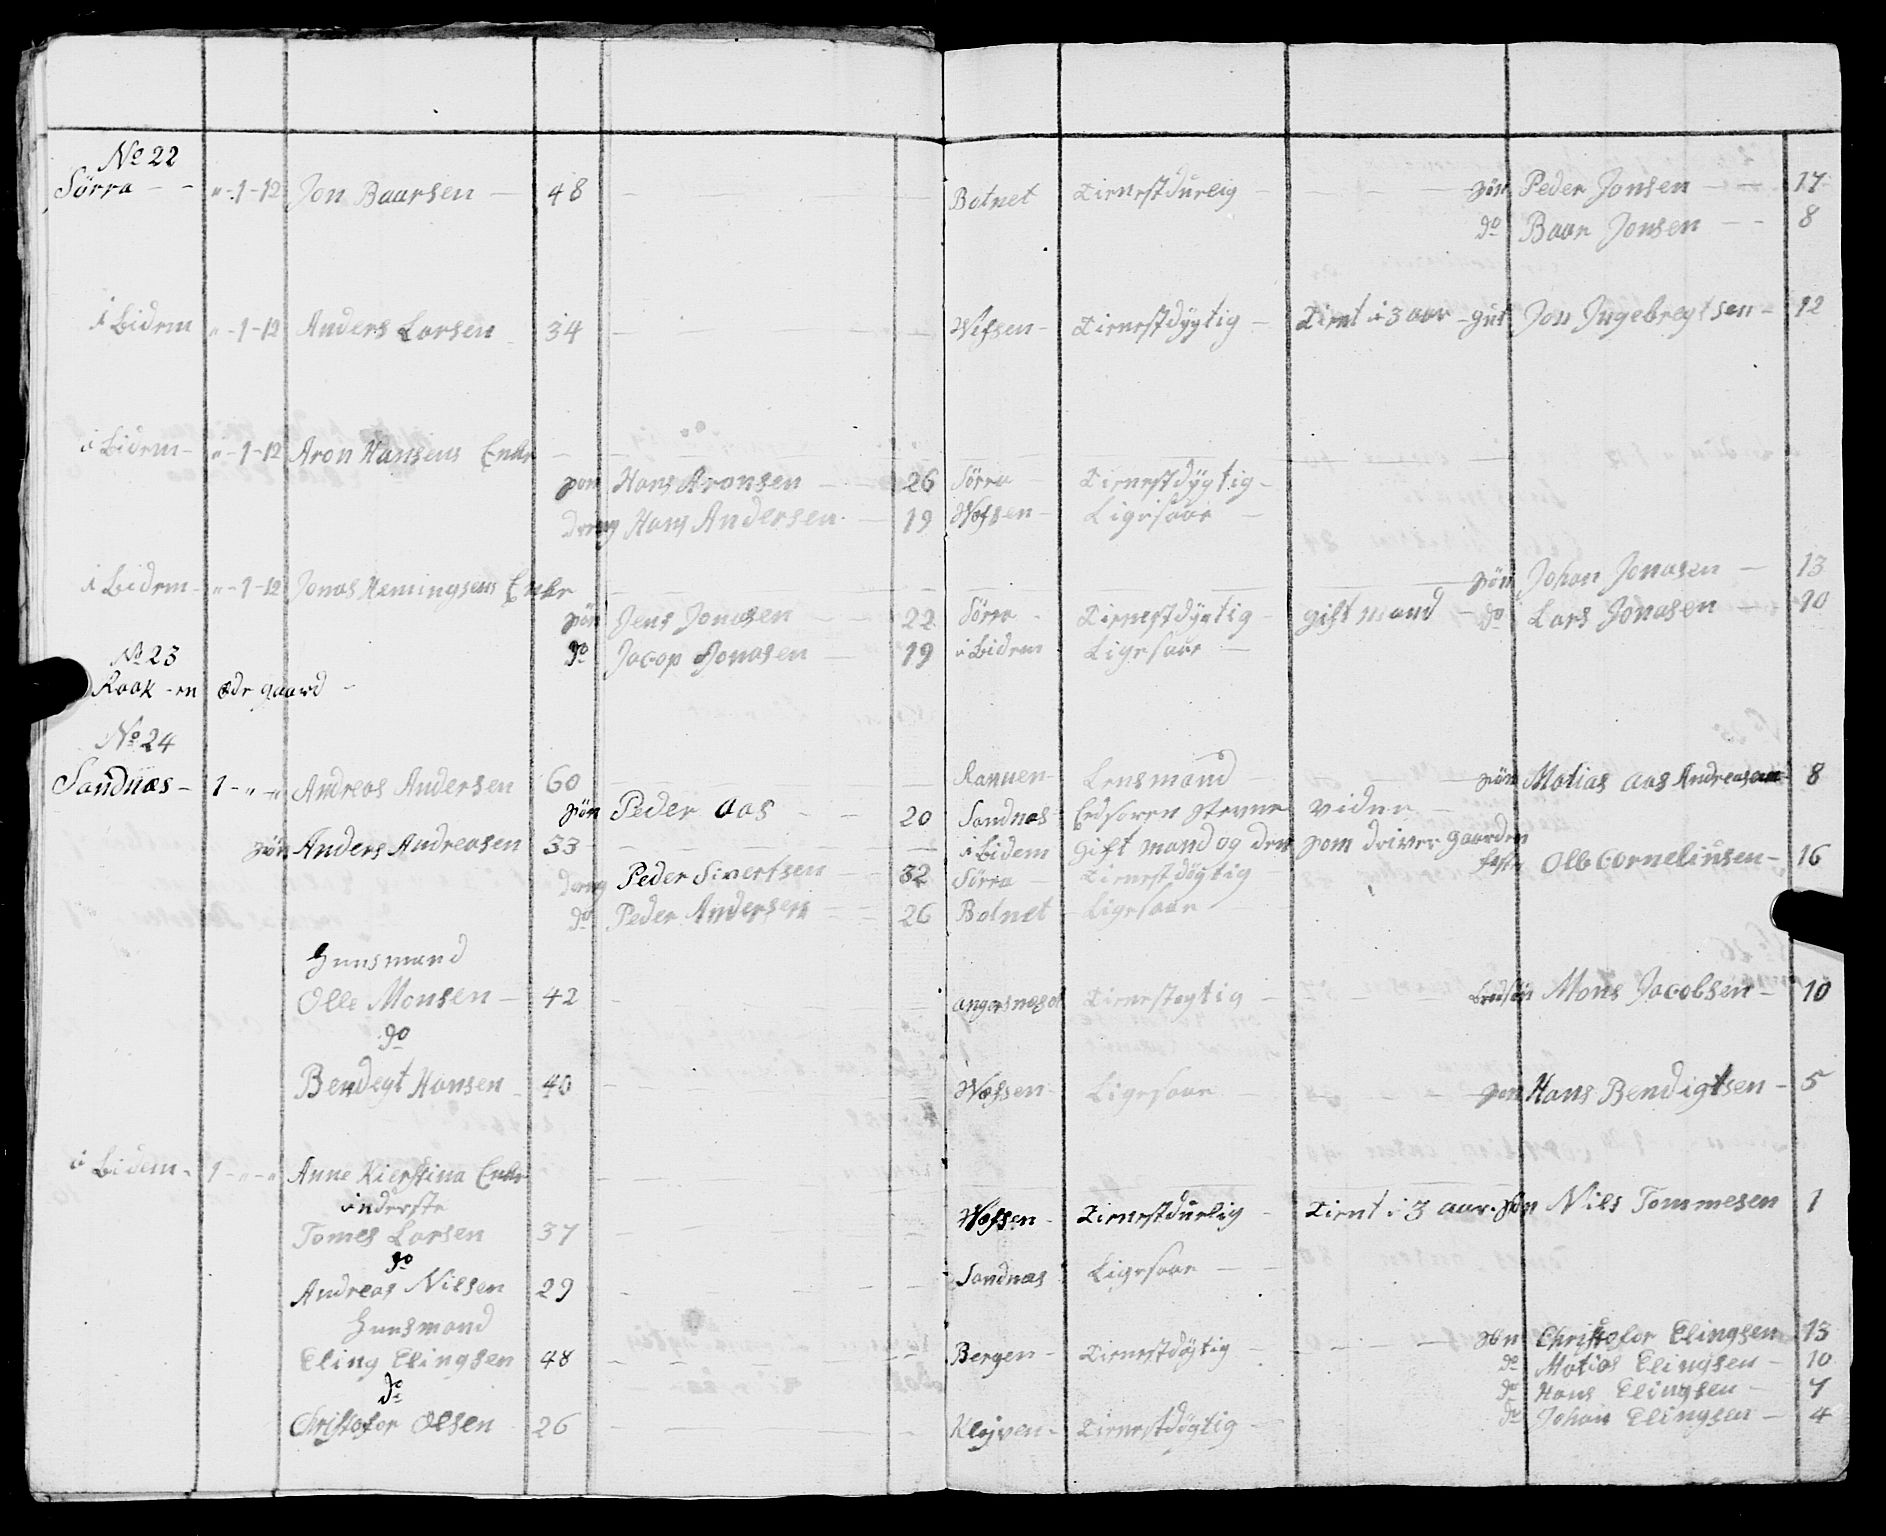 No 22
Sörra - - " - 1 - 12 Jon Baarsen - 48 Botnet Tienestdurlig - søn Peder Jonsen - - 17
do Baar Jonsen - - 8
i Bidem " - 1 - 12 Anders Larsen 34 Wefsen - Tienestdygtig - Tient i 3 aar - gut Jon Jngebregtsen - 12
i Bidem - " - 1 - 12 Aron Hansens Enke
søn Hans Aronsen - 26 Sörra Tienestdygtig -
dreng Hans Andersen - 19 Wefsen - Ligesaae -
i Bidem - " - 1 - 12 Jonas Hemingsens Enke søn Johan Jonasen - 13
søn Jens Jonasen - - 22 Sörra - Tienestdygtig - gift mand - do Lars Jonasen - 10
No 23 do Jacop Jonasen - 19 i Bidem Ligesaae -
Raak - en øde gaard -
No 24
Sandnæs - 1 - " - " Andreas Andersen 60 Ranuen - Lensmand - søn Matias Aas Andreasen 8
søn Peder Aas - - 20 Sandnæs Edsoren stevne vidne -
søn Anders Andreasen 33 i Bidem gift mand og den som driver gaarden
dreng Peder Sivertsen - 32 Sörra - Tienestdögtig - Ole Cornelinsen - 16
do Peder Andersen 26 Botnet - Ligesaae -
Huusmand
Olle Monsen - 42 Tienestögtig - Mons Jacobsen - 10
do
Bendegt Hansen - 40 Wefsen - Ligesaae - søn Hans Bendigtsen - 5
i Bidem - 1 - " - " Anne Kierstina Enke
inderste
Tomes Larsen 37 Wefsen - Tienestdurlig - Tient i 3 aar - søn Nils Tommesen 1
do
Andreas Nilsen 29 Sandnæs Ligesaae - -
Huusmand
Eling Elingsen 48 Bergen - Tienestdögtig søn Christofor Elingsen 13
do Matias Elingsen - 10
do do Hans Elingsen - 7
Christofor Olsen - 26 Klejven - Tienestdögtig - do Johan Elingsen - 4